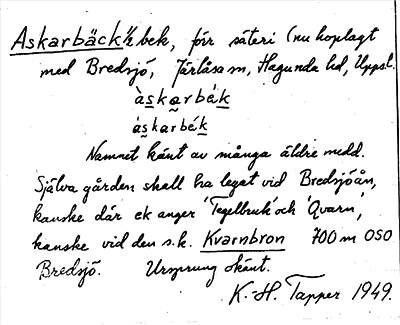 Askarbäck ½ bek, förr säteri (nu hoplagt
med Bredsjö, Järlåsa sn, Hagunda hd, Uppsl.
àskarbék
áskarbék
Namnet känt av många äldre medd.
Själva gården skall ha legat vid Bredsjöån,
kanske där ek anger 'Tegelbruk' och 'Qvarn',
kanske vid den s.k. Kvarnbron 700 m OSO
Bredsjö. Ursprung okänt.
K.-H. Tapper 1949.